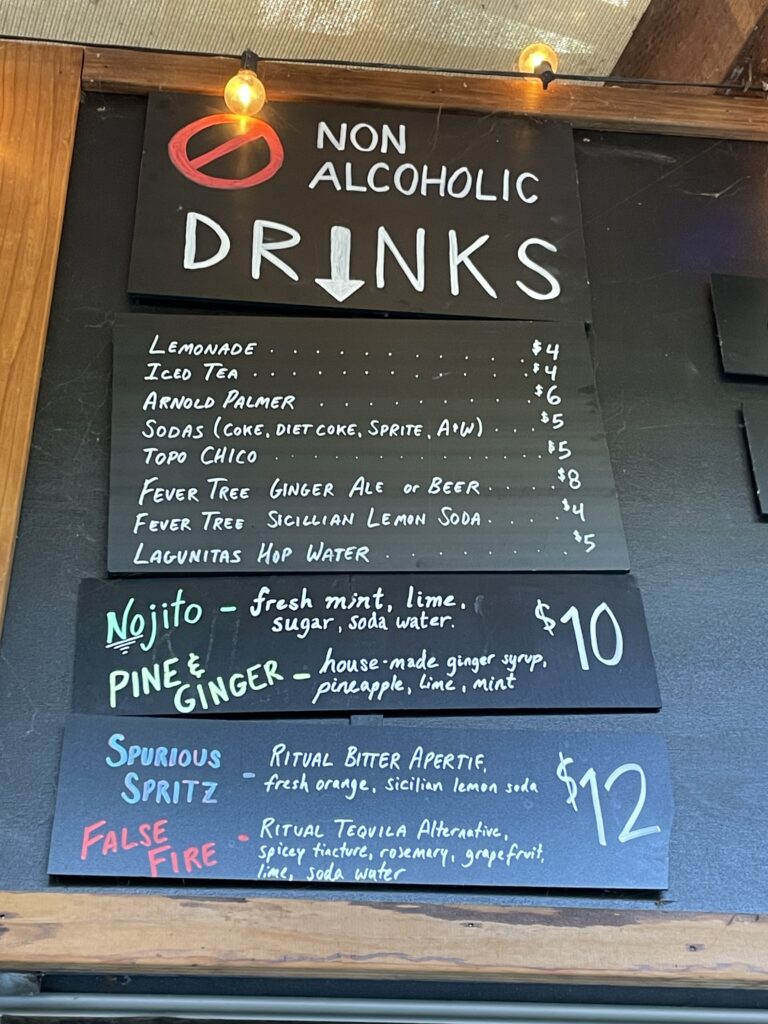 NON
ALCOHOLIC
DRINKS
LEMONADE . . . . . . . . . . . $4
ICED TEA . . . . . . . . . . . . $4
ARNOLD PALMER . . . . . . . . . $6
SODAS (COKE, DIET COKE, SPRITE, A&W) . . . $5
TOPO CHICO . . . . . . . . . . . $5
FEVER TREE GINGER ALE or BEER . . . . $8
FEVER TREE SICILLIAN LEMON SODA . . . . $4
LAGUNITAS HOP WATER . . . . . . . $5
Nojito - fresh mint, lime,
sugar, soda water.
$10
PINE & GINGER - house-made ginger syrup,
pineapple, lime, mint
SPURIOUS
SPRITZ - RITUAL BITTER APERTIF,
fresh orange, sicilian lemon soda
$12
FALSE
FIRE - RITUAL TEQUILA Alternative,
spicey tincture, rosemary, grapefruit,
lime, soda water